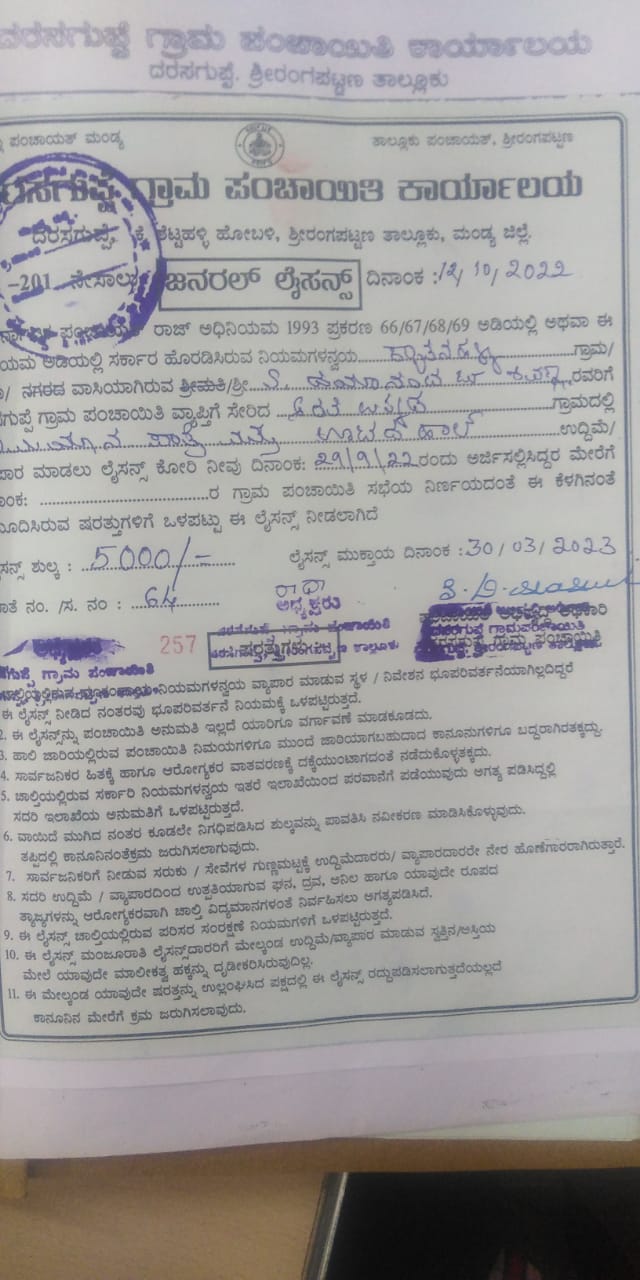 ದರಸಗುಪ್ಪೆ ಗ್ರಾಮ ಪಂಚಾಯಿತಿ ಕಾರ್ಯಾಲಯ
ದರಸಗುಪ್ಪೆ. ಶ್ರೀರಂಗಪಟ್ಟಣ ತಾಲ್ಲೂಕು
ಪಂಚಾಯತ್ ಮಂಡ್ಯ ತಾಲ್ಲೂಕು ಪಂಚಾಯತ್, ಶ್ರೀರಂಗಪಟ್ಟಣ
ರಸಗುಪ್ಪೆ ಗ್ರಾಮ ಪಂಚಾಯಿತಿ ಕಾರ್ಯಾಲಯ
ದರಸಗುಪ್ಪೆ, ಕೆ. ಶೆಟ್ಟಹಳ್ಳಿ ಹೋಬಳಿ, ಶ್ರೀರಂಗಪಟ್ಟಣ ತಾಲ್ಲೂಕು, ಮಂಡ್ಯ ಜಿಲ್ಲೆ.
-201 ನೇಸಾಲಿ ಜನರಲ್ ಲೈಸನ್ಸ್ ದಿನಾಂಕ :12/10/2022
ರಾಜ್ ಅಧಿನಿಯಮ 1993 ಪ್ರಕರಣ 66/67/68/69 ಅಡಿಯಲ್ಲಿ ಅಥವಾ ಈ
ಯಮ ಅಡಿಯಲ್ಲಿ ಸರ್ಕಾರ ಹೊರಡಿಸಿರುವ ನಿಯಮಗಳನ್ವಯ ಗ್ರಾಮ/
ನಗರದ ವಾಸಿಯಾಗಿರುವ ಶ್ರೀಮತಿ/ಶ್ರೀ ರವರಿಗೆ
ಗುಪ್ಪೆ ಗ್ರಾಮ ಪಂಚಾಯಿತಿ ವ್ಯಾಪ್ತಿಗೆ ಸೇರಿದ ಗ್ರಾಮದಲ್ಲಿ
ಉದ್ದಿಮೆ/
ಪಾರ ಮಾಡಲು ಲೈಸನ್ಸ್ ಕೋರಿ ನೀವು ದಿನಾಂಕ: 29/9/22 ರಂದು ಅರ್ಜಿಸಲ್ಲಿಸಿದ್ದರ ಮೇರೆಗೆ
ಾಂಕ: ...............................ರ ಗ್ರಾಮ ಪಂಚಾಯಿತಿ ಸಭೆಯ ನಿರ್ಣಯದಂತೆ ಈ ಕೆಳಗಿನಂತೆ
ಮೂದಿಸಿರುವ ಷರತ್ತುಗಳಿಗೆ ಒಳಪಟ್ಟು ಈ ಲೈಸನ್ಸ್ ನೀಡಲಾಗಿದೆ
ಸನ್ಸ್ ಶುಲ್ಕ : 5000/- ಲೈಸನ್ಸ್ ಮುಕ್ತಾಯ ದಿನಾಂಕ :30/03/2023
ಾತೆ ನಂ. /ಸ. ನಂ : 64
ರಾಧಾ
ಅಧ್ಯಕ್ಷರು
257 ಷರತ್ತುಗಳು
ಗುಪ್ಪೆ ಗ್ರಾಮ ಪಂಚಾಯಿತಿ
ನಿಯಮಗಳನ್ವಯ ವ್ಯಾಪಾರ ಮಾಡುವ ಸ್ಥಳ / ನಿವೇಶನ ಭೂಪರಿವರ್ತನೆಯಾಗಿಲ್ಲದಿದ್ದರೆ
ಈ ಲೈಸನ್ಸ್ ನೀಡಿದ ನಂತರವು ಭೂಪರಿವರ್ತನೆ ನಿಯಮಕ್ಕೆ ಒಳಪಟ್ಟಿರುತ್ತದೆ.
2. ಈ ಲೈಸನ್ಸ್‌ನ್ನು ಪಂಚಾಯಿತಿ ಅನುಮತಿ ಇಲ್ಲದೆ ಯಾರಿಗೂ ವರ್ಗಾವಣೆ ಮಾಡಕೂಡದು.
3. ಹಾಲಿ ಜಾರಿಯಲ್ಲಿರುವ ಪಂಚಾಯಿತಿ ನಿಮಯಗಳಿಗೂ ಮುಂದೆ ಜಾರಿಯಾಗಬಹುದಾದ ಕಾನೂನುಗಳಿಗೂ ಬದ್ದರಾಗಿರತಕ್ಕದ್ದು.
4. ಸಾರ್ವಜನಿಕರ ಹಿತಕ್ಕೆ ಹಾಗೂ ಆರೋಗ್ಯಕರ ವಾತವರಣಕ್ಕೆ ದಕ್ಕೆಯುಂಟಾಗದಂತೆ ನಡೆದುಕೊಳ್ಳತಕ್ಕದು.
5. ಚಾಲ್ತಿಯಲ್ಲಿರುವ ಸರ್ಕಾರಿ ನಿಯಮಗಳನ್ವಯ ಇತರೆ ಇಲಾಖೆಯಿಂದ ಪರವಾನೆಗೆ ಪಡೆಯುವುದು ಅಗತ್ಯ ಪಡಿಸಿದ್ದಲ್ಲಿ
ಸದರಿ ಇಲಾಖೆಯ ಅನುಮತಿಗೆ ಒಳಪಟ್ಟಿರುತ್ತದೆ.
6. ವಾಯಿದೆ ಮುಗಿದ ನಂತರ ಕೂಡಲೇ ನಿಗಧಿಪಡಿಸಿದ ಶುಲ್ಕವನ್ನು ಪಾವತಿಸಿ ನವೀಕರಣ ಮಾಡಿಸಿಕೊಳ್ಳುವುದು.
ತಪ್ಪಿದಲ್ಲಿ ಕಾನೂನಿನಂತೆಕ್ರಮ ಜರುಗಿಸಲಾಗುವುದು.
7. ಸಾರ್ವಜನಿಕರಿಗೆ ನೀಡುವ ಸರುಕು / ಸೇವೆಗಳ ಗುಣ್ಣಮಟ್ಟಕ್ಕೆ ಉದ್ದಿಮೆದಾರರು/ ವ್ಯಾಪಾರದಾರರೇ ನೇರ ಹೊಣೆಗಾರರಾಗಿರುತ್ತಾರೆ.
8. ಸದರಿ ಉದ್ದಿಮೆ / ವ್ಯಾಪಾರದಿಂದ ಉತ್ಪತಿಯಾಗುವ ಘನ, ದ್ರವ, ಅನಿಲ ಹಾಗೂ ಯಾವುದೇ ರೂಪದ
ತ್ಯಾಜ್ಯಗಳನ್ನು ಆರೋಗ್ಯಕರವಾಗಿ ಚಾಲ್ತಿ ವಿಧ್ಯಮಾನಗಳಂತೆ ನಿರ್ವಹಿಸಲು ಅಗತ್ಯಪಡಿಸಿದೆ.
9. ಈ ಲೈಸನ್ಸ್ ಚಾಲ್ತಿಯಲ್ಲಿರುವ ಪರಿಸರ ಸಂರಕ್ಷಣೆ ನಿಯಮಗಳಿಗೆ ಒಳಪಟ್ಟಿರುತ್ತದೆ.
10. ಈ ಲೈಸನ್ಸ್ ಮಂಜೂರಾತಿ ಲೈಸನ್ಸ್‌ದಾರರಿಗೆ ಮೇಲ್ಕಂಡ ಉದ್ದಿಮೆ/ವ್ಯಾಪಾರ ಮಾಡುವ ಸ್ವತ್ತಿನ/ಆಸ್ತಿಯ
ಮೇಲೆ ಯಾವುದೇ ಮಾಲೀಕತ್ವ ಹಕ್ಕನ್ನು ದೃಡೀಕರಿಸಿರುವುದಿಲ್ಲ.
11. ಈ ಮೇಲ್ಕಂಡ ಯಾವುದೇ ಷರತ್ತನ್ನು ಉಲ್ಲಂಘಿಸಿದ ಪಕ್ಷದಲ್ಲಿ ಈ ಲೈಸನ್ಸ್ ರದ್ದುಪಡಿಸಲಾಗುತ್ತದೆಯಲ್ಲದೆ
ಕಾನೂನಿನ ಮೇರೆಗೆ ಕ್ರಮ ಜರುಗಿಸಲಾವುದು.